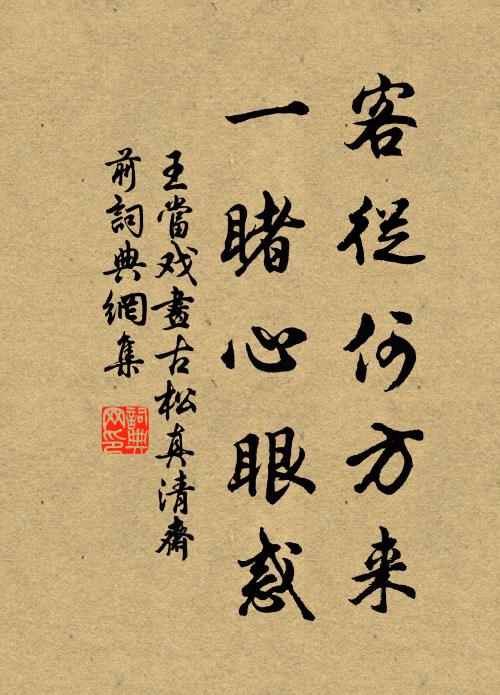 客從何方来
一睹心眼惑
王當戏畫古松真清齋
前詞典網集
詞典网印